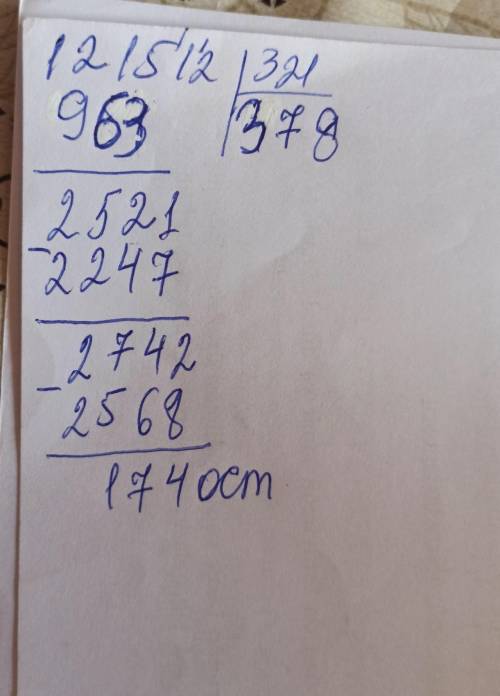 121512 321
963 378
2521
- 2247
2742
- 2568
174 ост